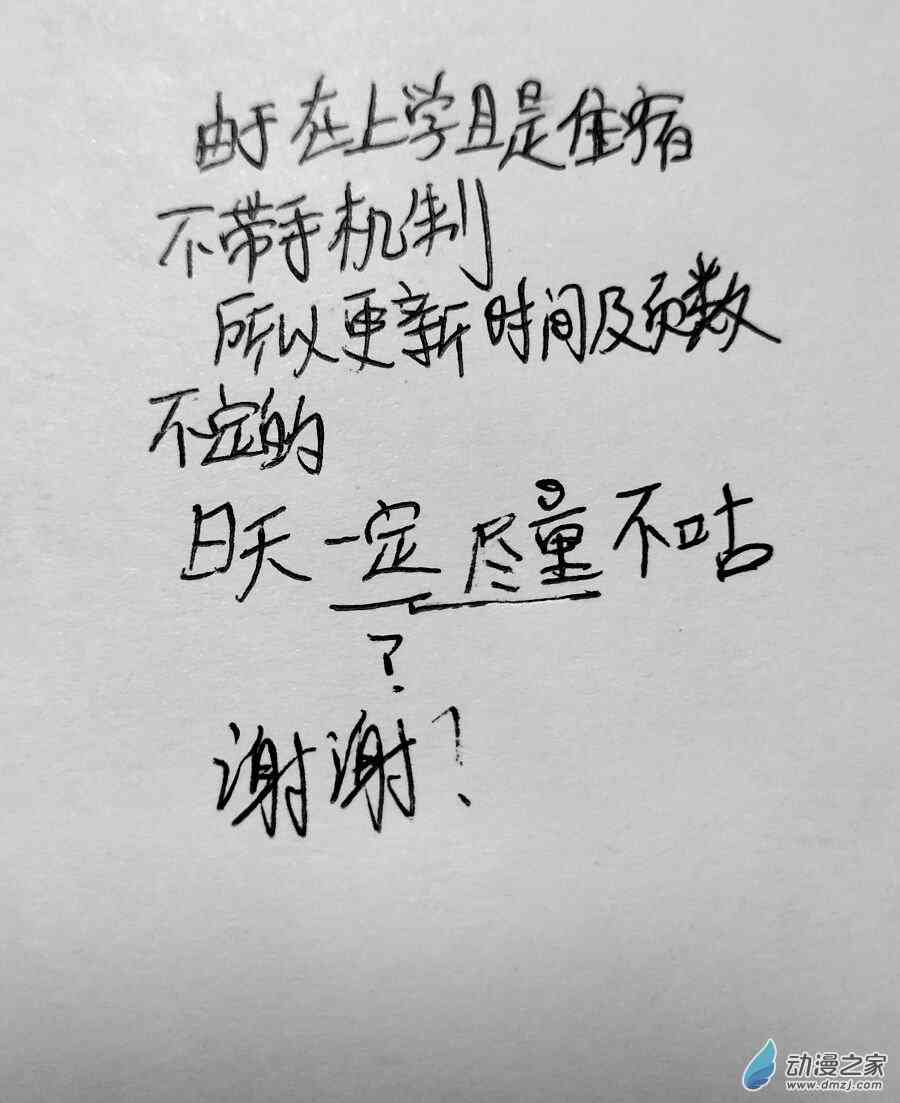 由于在上学且是住宿
不带手机制
所以更新时间及页数
不定的
日天一定尽量不咕
?
谢谢!
动漫之家
www.dmzj.com